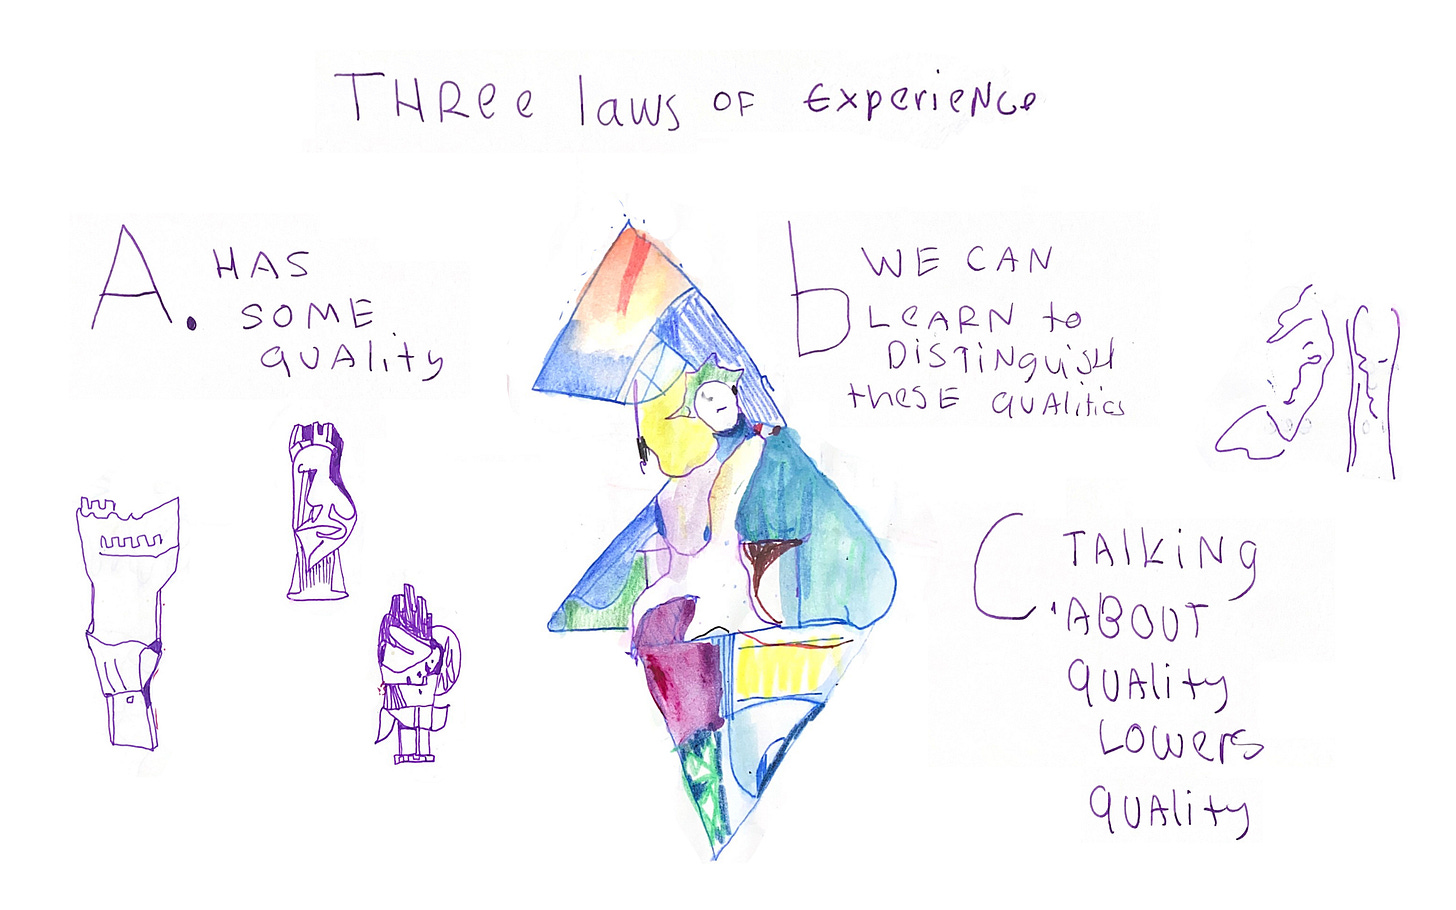 THRee laws OF ExperieNce
A. HAS
SOME
quAlity
b WE CAN
LeARN to
DiSTiNguiSH
theSE quAlitics
C. TAlkiNg
ABOUT
quAlity
LOWerS
quAlity